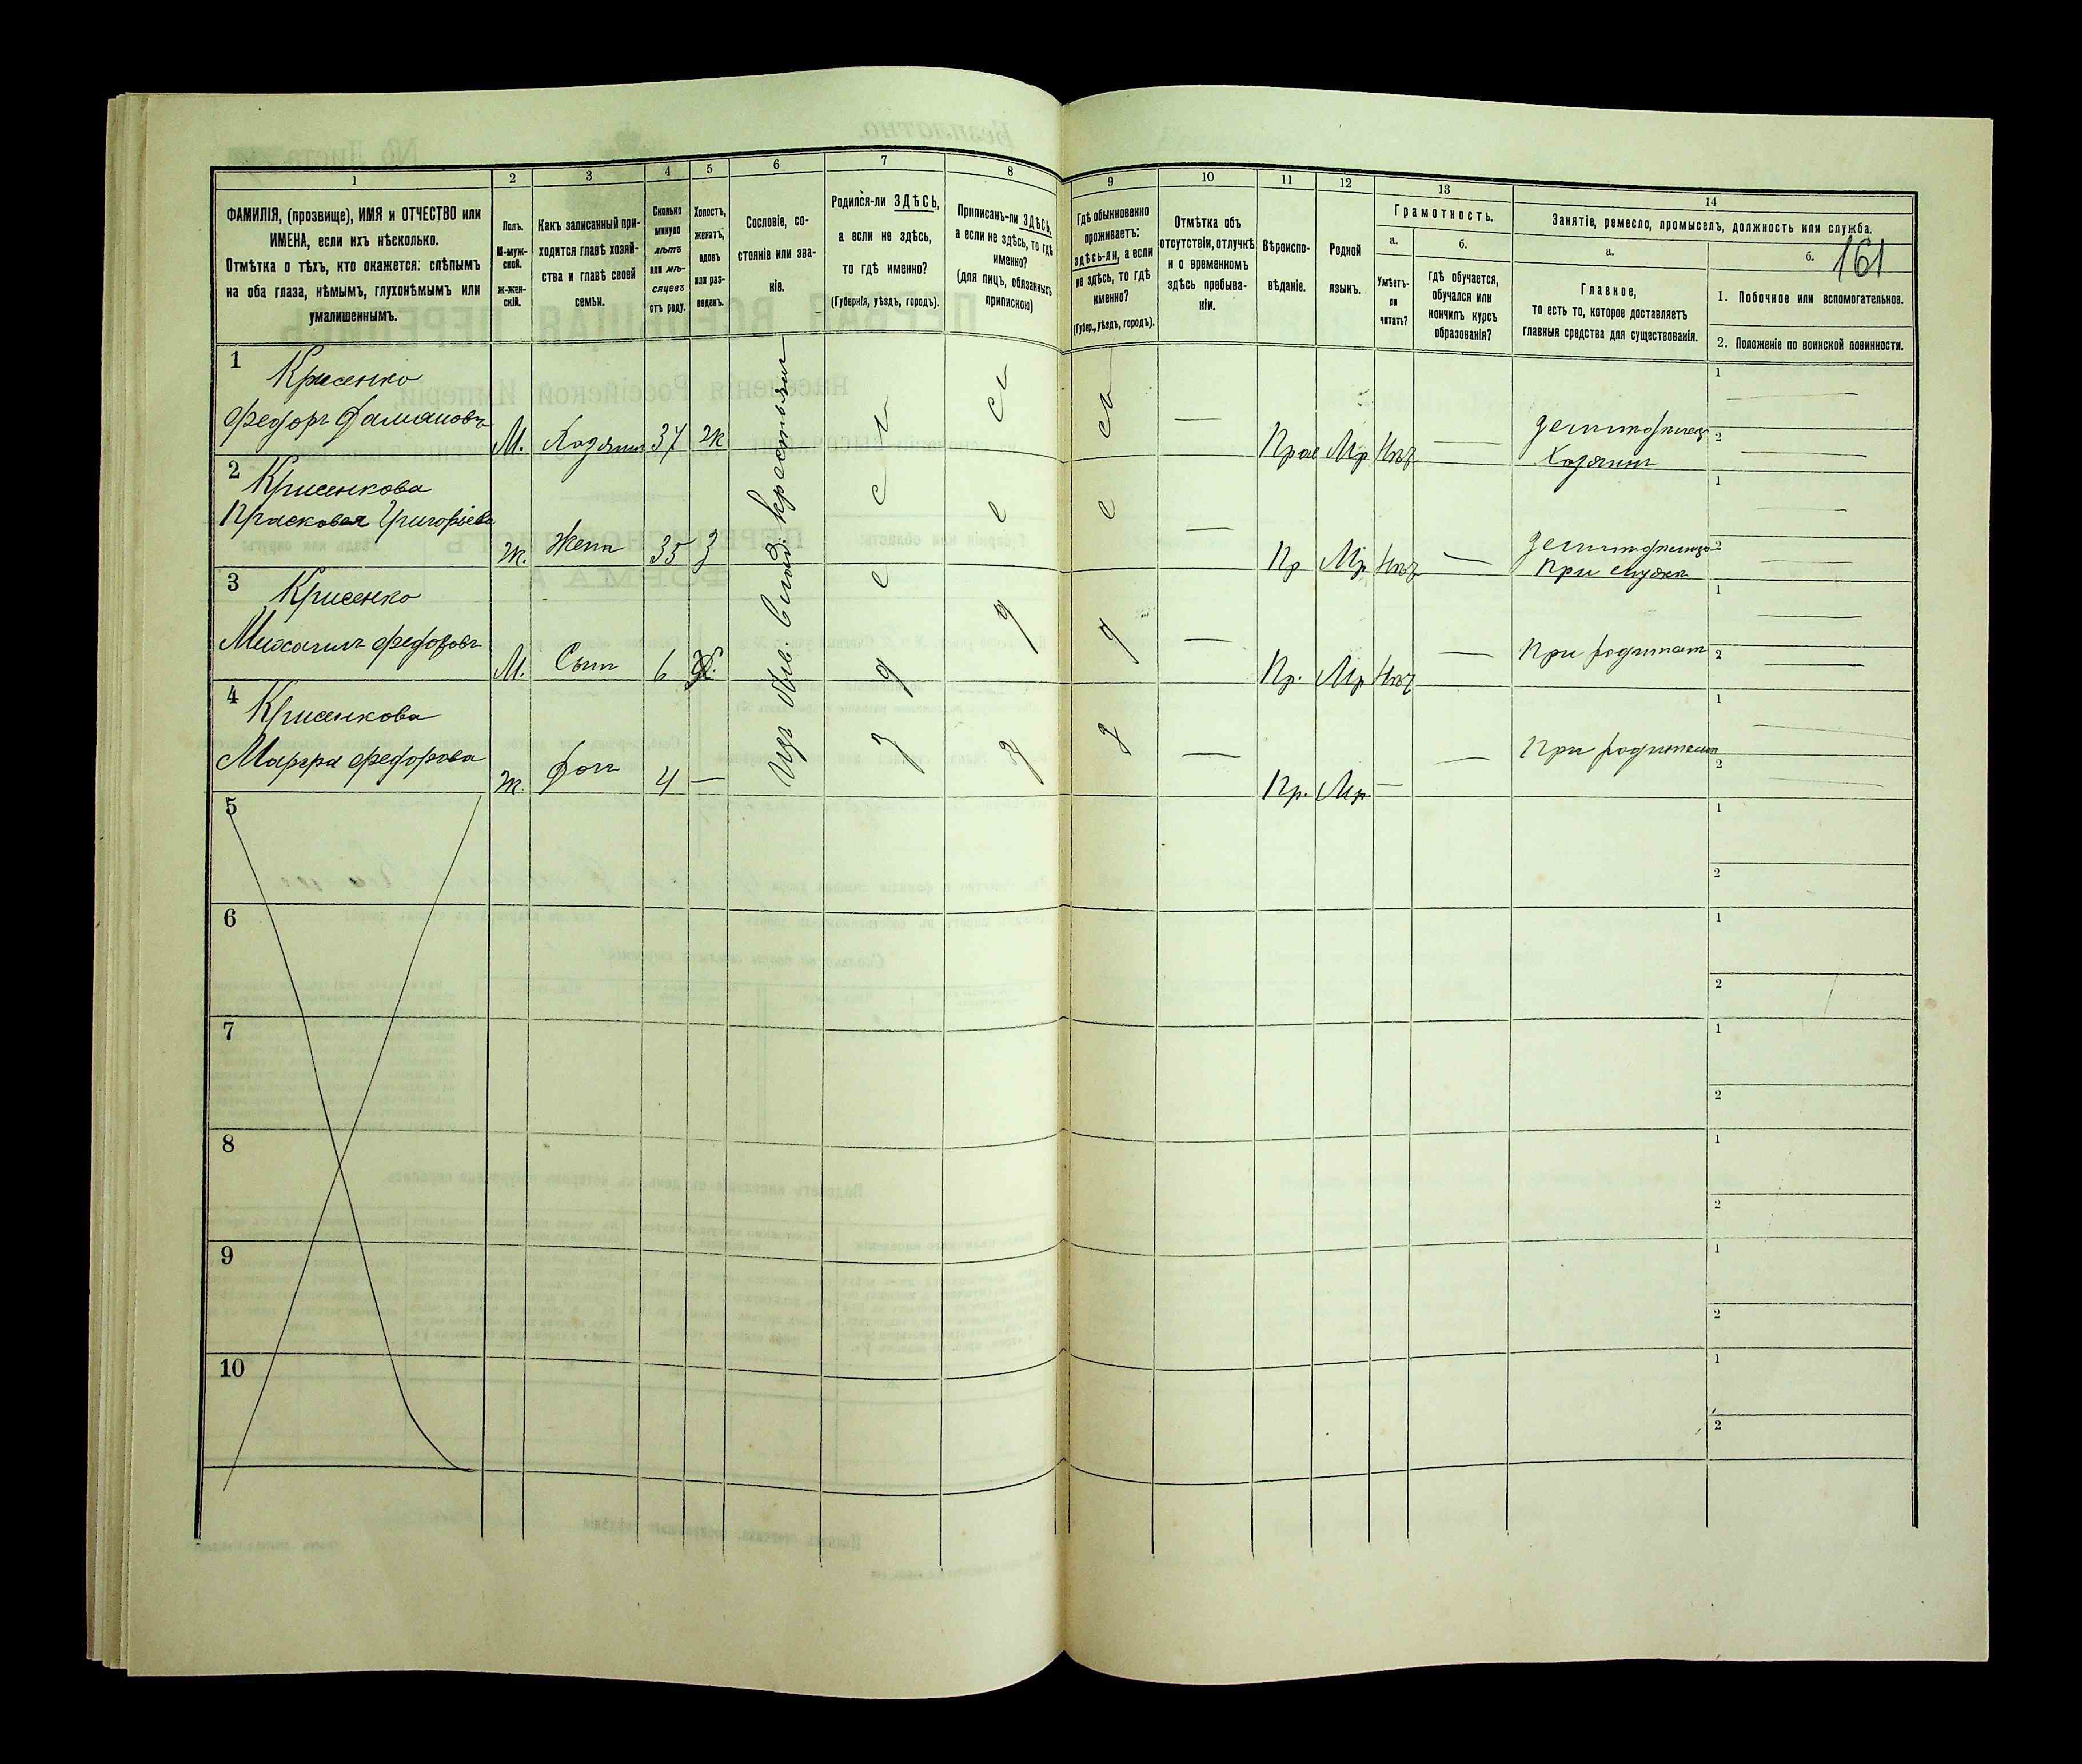 1
2
3
4
5
6
7
8
9
10
11
12
13
14
ФАМИЛІЯ, (прозвище), ИМЯ и ОТЧЕСТВО или
ИМЕНА, если ихъ нѣсколько.
Отмѣтка о тѣхъ, кто окажется: слѣпымъ
на оба глаза, нѣмымъ, глухонѣмымъ или
умалишеннымъ.
Полъ.
М-муж-
ской.
Ж-жен-
скій.
Какъ записанный при-
ходится главѣ хозяй-
ства и главѣ своей
семьи.
Сколько
минуло
лѣтъ
или мѣ-
сяцевъ
отъ роду.
Холостъ,
женатъ,
вдовъ
или раз-
веденъ.
Сословіе, со-
стояніе или зва-
ніе.
Родился-ли ЗДѢСЬ,
а если не здѣсь,
то гдѣ именно?
(Губернія, уѣздъ, городъ).
Приписанъ-ли ЗДѢСЬ,
а если не здѣсь, то гдѣ
именно?
(для лицъ, обязанныхъ
припискою)
Гдѣ обыкновенно
проживаетъ:
здѣсь-ли, а если
не здѣсь, то гдѣ
именно?
(Губер., уѣздъ, городъ).
Отмѣтка объ
отсутствіи, отлучкѣ
и о временномъ
здѣсь пребыва-
ніи.
Вѣроиспо-
вѣданіе.
Родной
языкъ.
Грамотность.
а.
Умѣетъ-
ли
читать?
б.
гдѣ обучается,
обучался или
кончилъ курсъ
образованія?
Занятіе, ремесло, промыселъ, должность или служба.
а.
Главное,
то есть то, которое доставляетъ
главныя средства для существованія.
б.
161
1. Побочное или вспомогательное.
2. Положеніе по воинской повинности.
1
Крисенко
Федоръ
М. Хозяинъ 37 ж
Прав Мр Нѣт
Хозяинъ
1
2
2
Крисенкова
Прасковея Григоріева
Ж. Жена 35 З
Пр Мр Нѣт
При мужѣ
1
2
3
Крисенко
Михаилъ Федоровъ
М. Сынъ 6
Пр. Мр Нѣт
При родителях
1
2
4
Крисенкова
Марфа Федорова
Ж. Доч 4 —
Пр. Мр. —
При родителях
1
2
крестьянъ
5
1
2
6
1
2
7
1
2
8
1
2
9
1
2
10
1
2